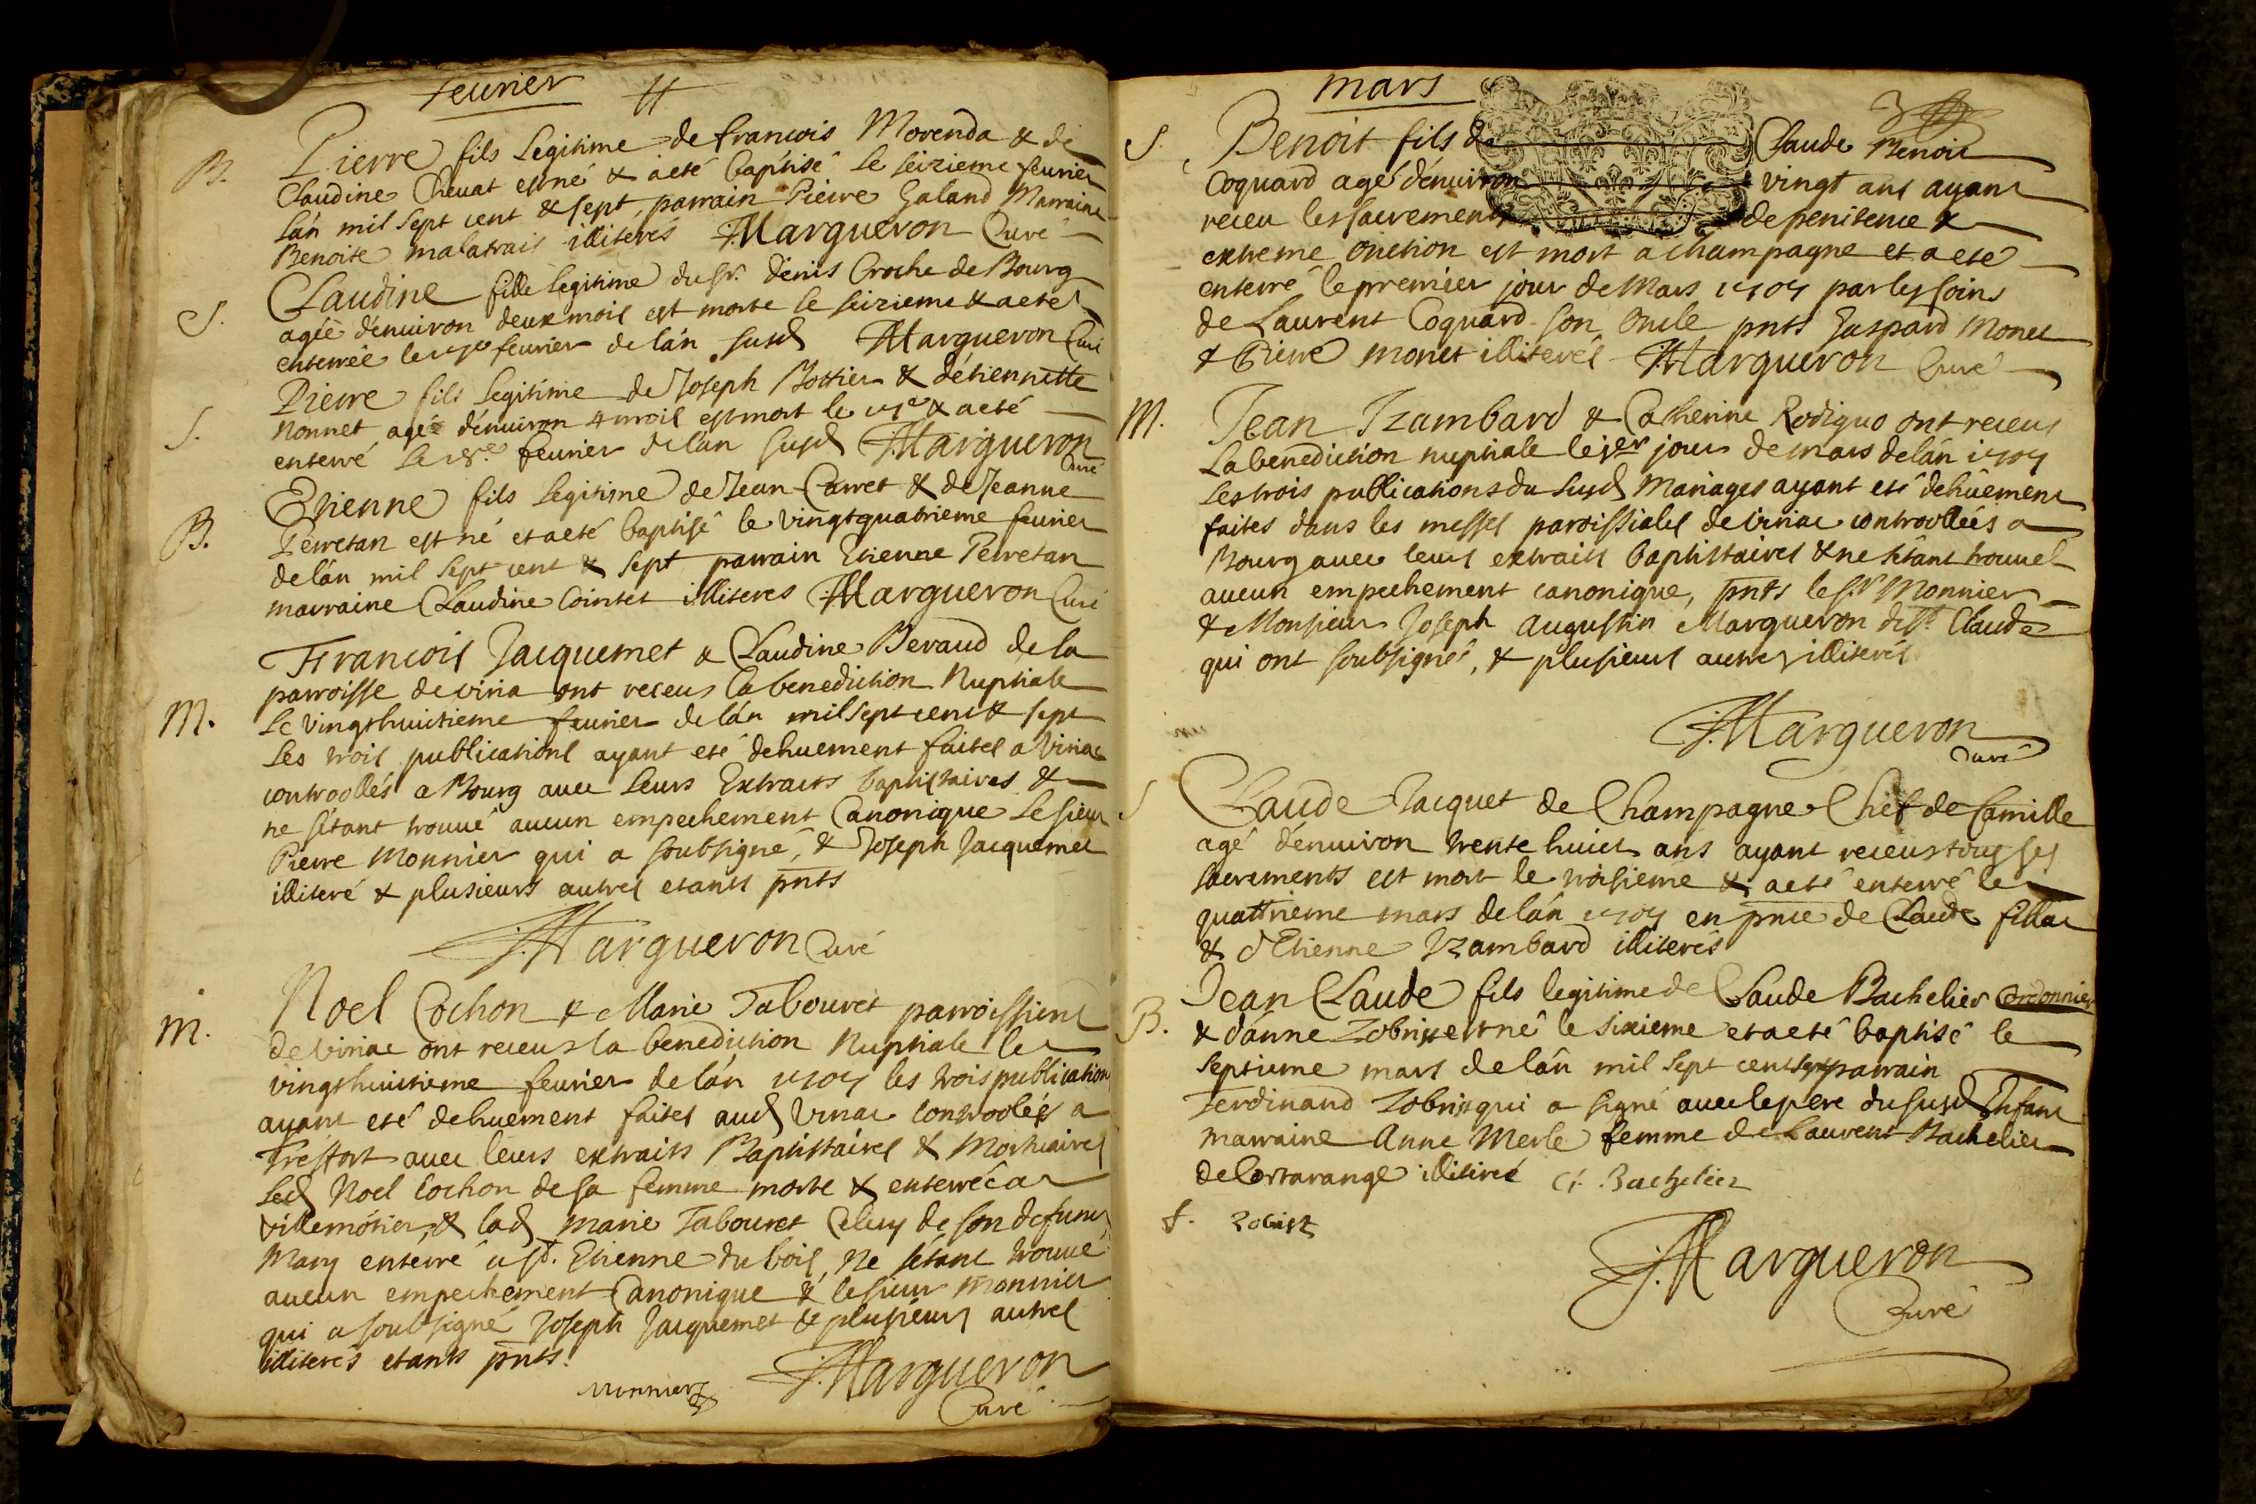 feurier
B. Pierre fils Legitime de francois Morenda & de
Claudine Chevat est né & a eté baptisé le seizieme feurier
lán mil sept cent & sept, parrain Pierre Galand Marraine
Benoite malatrais illiterés JMargueron Curé
S. Claudine fille legitime du sr. denis Croche de Bourg
agée dénuiron deux mois est morte le seizieme & a eté
enterrée le 17e feurier de lán susd JMargueron Curé
S. Pierre fils legitime de Joseph Bottier & détiennette
Nonnet agé dénuiron 4 mois est mort le 17e & a eté
enterré le 18e feurier de lan susd JMargueron
Curé
B. Etienne fils legitime de Jean Carret & de Jeanne
Perretan est né et a eté baptisé le vingtquatrieme feurier
de lán mil sept cent & sept parrain Etienne Perretan
marraine Claudine Cointet illiteres JMargueron Curé
M. Francois Jacquemet & Claudine Beraud de la
parroisse de viria ont receus la benediction Nuptiale
le vingthuictieme feurier de lán mil sept cent & sept
les trois publications ayant eté dehuement faites a Viriac
controollés a Bourg auec leurs Extraits baptistaires &
ne sétant trouué aucun empechement Canonique le sieur
Pierre Monnier qui a soubsigné, & Joseph Jacquemet
illiteré & plusieurs autres etants pnts
JMargueron Curé
M. Noel Cochon & Marie Tabouret parroissiens
de viriac ont receus la benediction Nuptiale le
vingthuictieme feurier de lán 1707 les trois publication
ayant eté dehuement faites aud Viriac Controolés a
Treffort auec leurs extraits Baptistaires & Mortuaires
led Noel Cochon de sa femme morte & enterrée a
villemótier, & lad Marie Tabouret Celuy de son defunt
Mary enterré a st. Etienne du bois, Ne sétant trouué
aucun empechement Canonique & le sieur monnier
qui a soubsigné Joseph Jacquemet & plusieurs autres
illiterés etants pnts.
monnier JMargueron
Curé
mars
3
S. Benoit fils de Claude Benoit
Coquard agé dénuiron vingt ans ayant
receu les sacrements de penitence &
extreme onction est mort a champagne et a eté
enterré le premier jour de Mars 1707 par les soins
de Laurent Coquard son oncle pnts Jaspard Monet
& Pierre monet illiterés JMargueron Curé
M. Jean Jzambard & Catherine Rodiguo ont receus
la benediction nuptiale le jer jour de mars de lán 1707
les trois publications du susd Mariages ayant eté dehüement
faites dans les messes paroissiales de viriac controollées a
Bourg auec leurs extraits baptistaires & ne sétant trouués
aucun empechement canonique, pnts le sr Monnier
& Monsieur Joseph Augustin Margueron Claude
qui ont soubsignés, & plusieurs autres illiterés
JMargueron
Curé
S Claude Jacquet de Champagne Chef de Camille
agé dénuiron trente huict ans ayant receus tous ses
sacrements est mort le troisieme & a eté enterré le
quattrieme mars de lán 1707 en pnce de Claude fillac
& dEtienne Jzambard illiterés
B. Jean Claude fils legitime de Claude Bachelier Cordonnier
& dánne Zobrist est né le sixieme et a eté baptisé le
septieme mars de lán mil sept cent sept parrain
Ferdinand Zobrist qui a signé auec le pere du susd Enfant
marraine Anne Merle femme de Laurent Bachelier
de Cortarange illiterée Cl. Bachelier
f. Zobrist
JMargueron
Curé